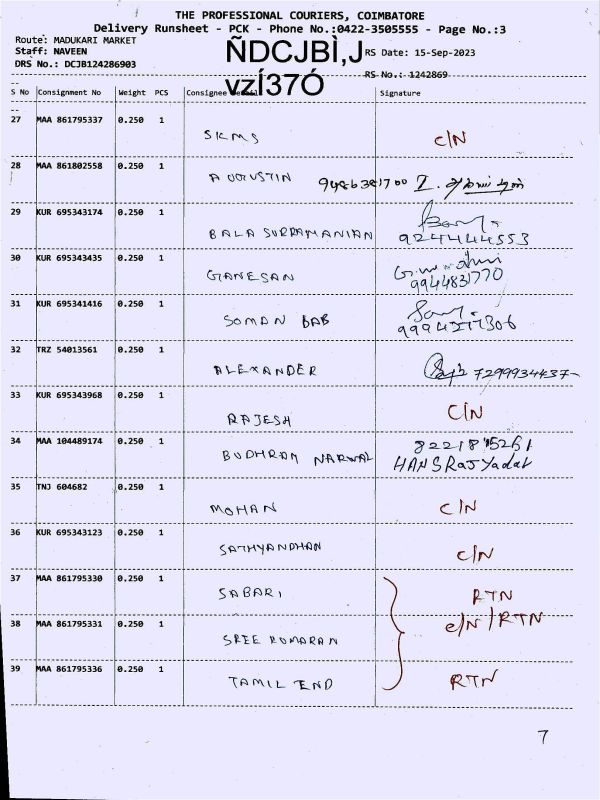 THE PROFESSIONAL COURIERS, COIMBATORE
Delivery Runsheet - PCK - Phone No.:0422-3505555 - Page No.:3
Route: MADUKARI MARKET
Staff: NAVEEN
DRS No.: DCJB124286903
ÑDCJBÌ,J
vzÍ37Ó
RS Date: 15-Sep-2023
RS No.: 1242869
S No Consignment No Weight PCS Consignee Signature
27 MAA 861795337 0.250 1 SKMS C/N
28 MAA 861802558 0.250 1 AUGUSTIN 9486381700
29 KUR 695343174 0.250 1 BALA SUBRAMANIAN 9244444553
30 KUR 695343435 0.250 1 GANESAN 9944831770
31 KUR 695341416 0.250 1 SOMAN BAB
32 TRZ 54013561 0.250 1 ALEXANDER 7299934437
33 KUR 695343968 0.250 1 RAJESH C/N
34 MAA 104489174 0.250 1 BUDHRAM NARWAL
HANSRAJ Yadav
35 TNJ 604682 0.250 1 MOHAN C/N
36 KUR 695343123 0.250 1 SATHYANDHAN C/N
37 MAA 861795330 0.250 1 SABARI RTN
38 MAA 861795331 0.250 1 SREE KUMARAN C/N / RTN
39 MAA 861795336 0.250 1 TAMIL END RTN
7